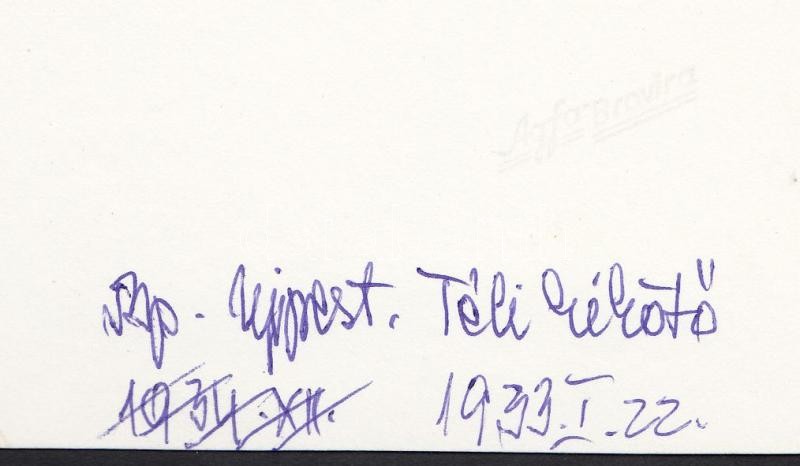 Agfa-Brovira
Bp. Ujpest. Téli kikötő
1934.XII. 1933.I.22.